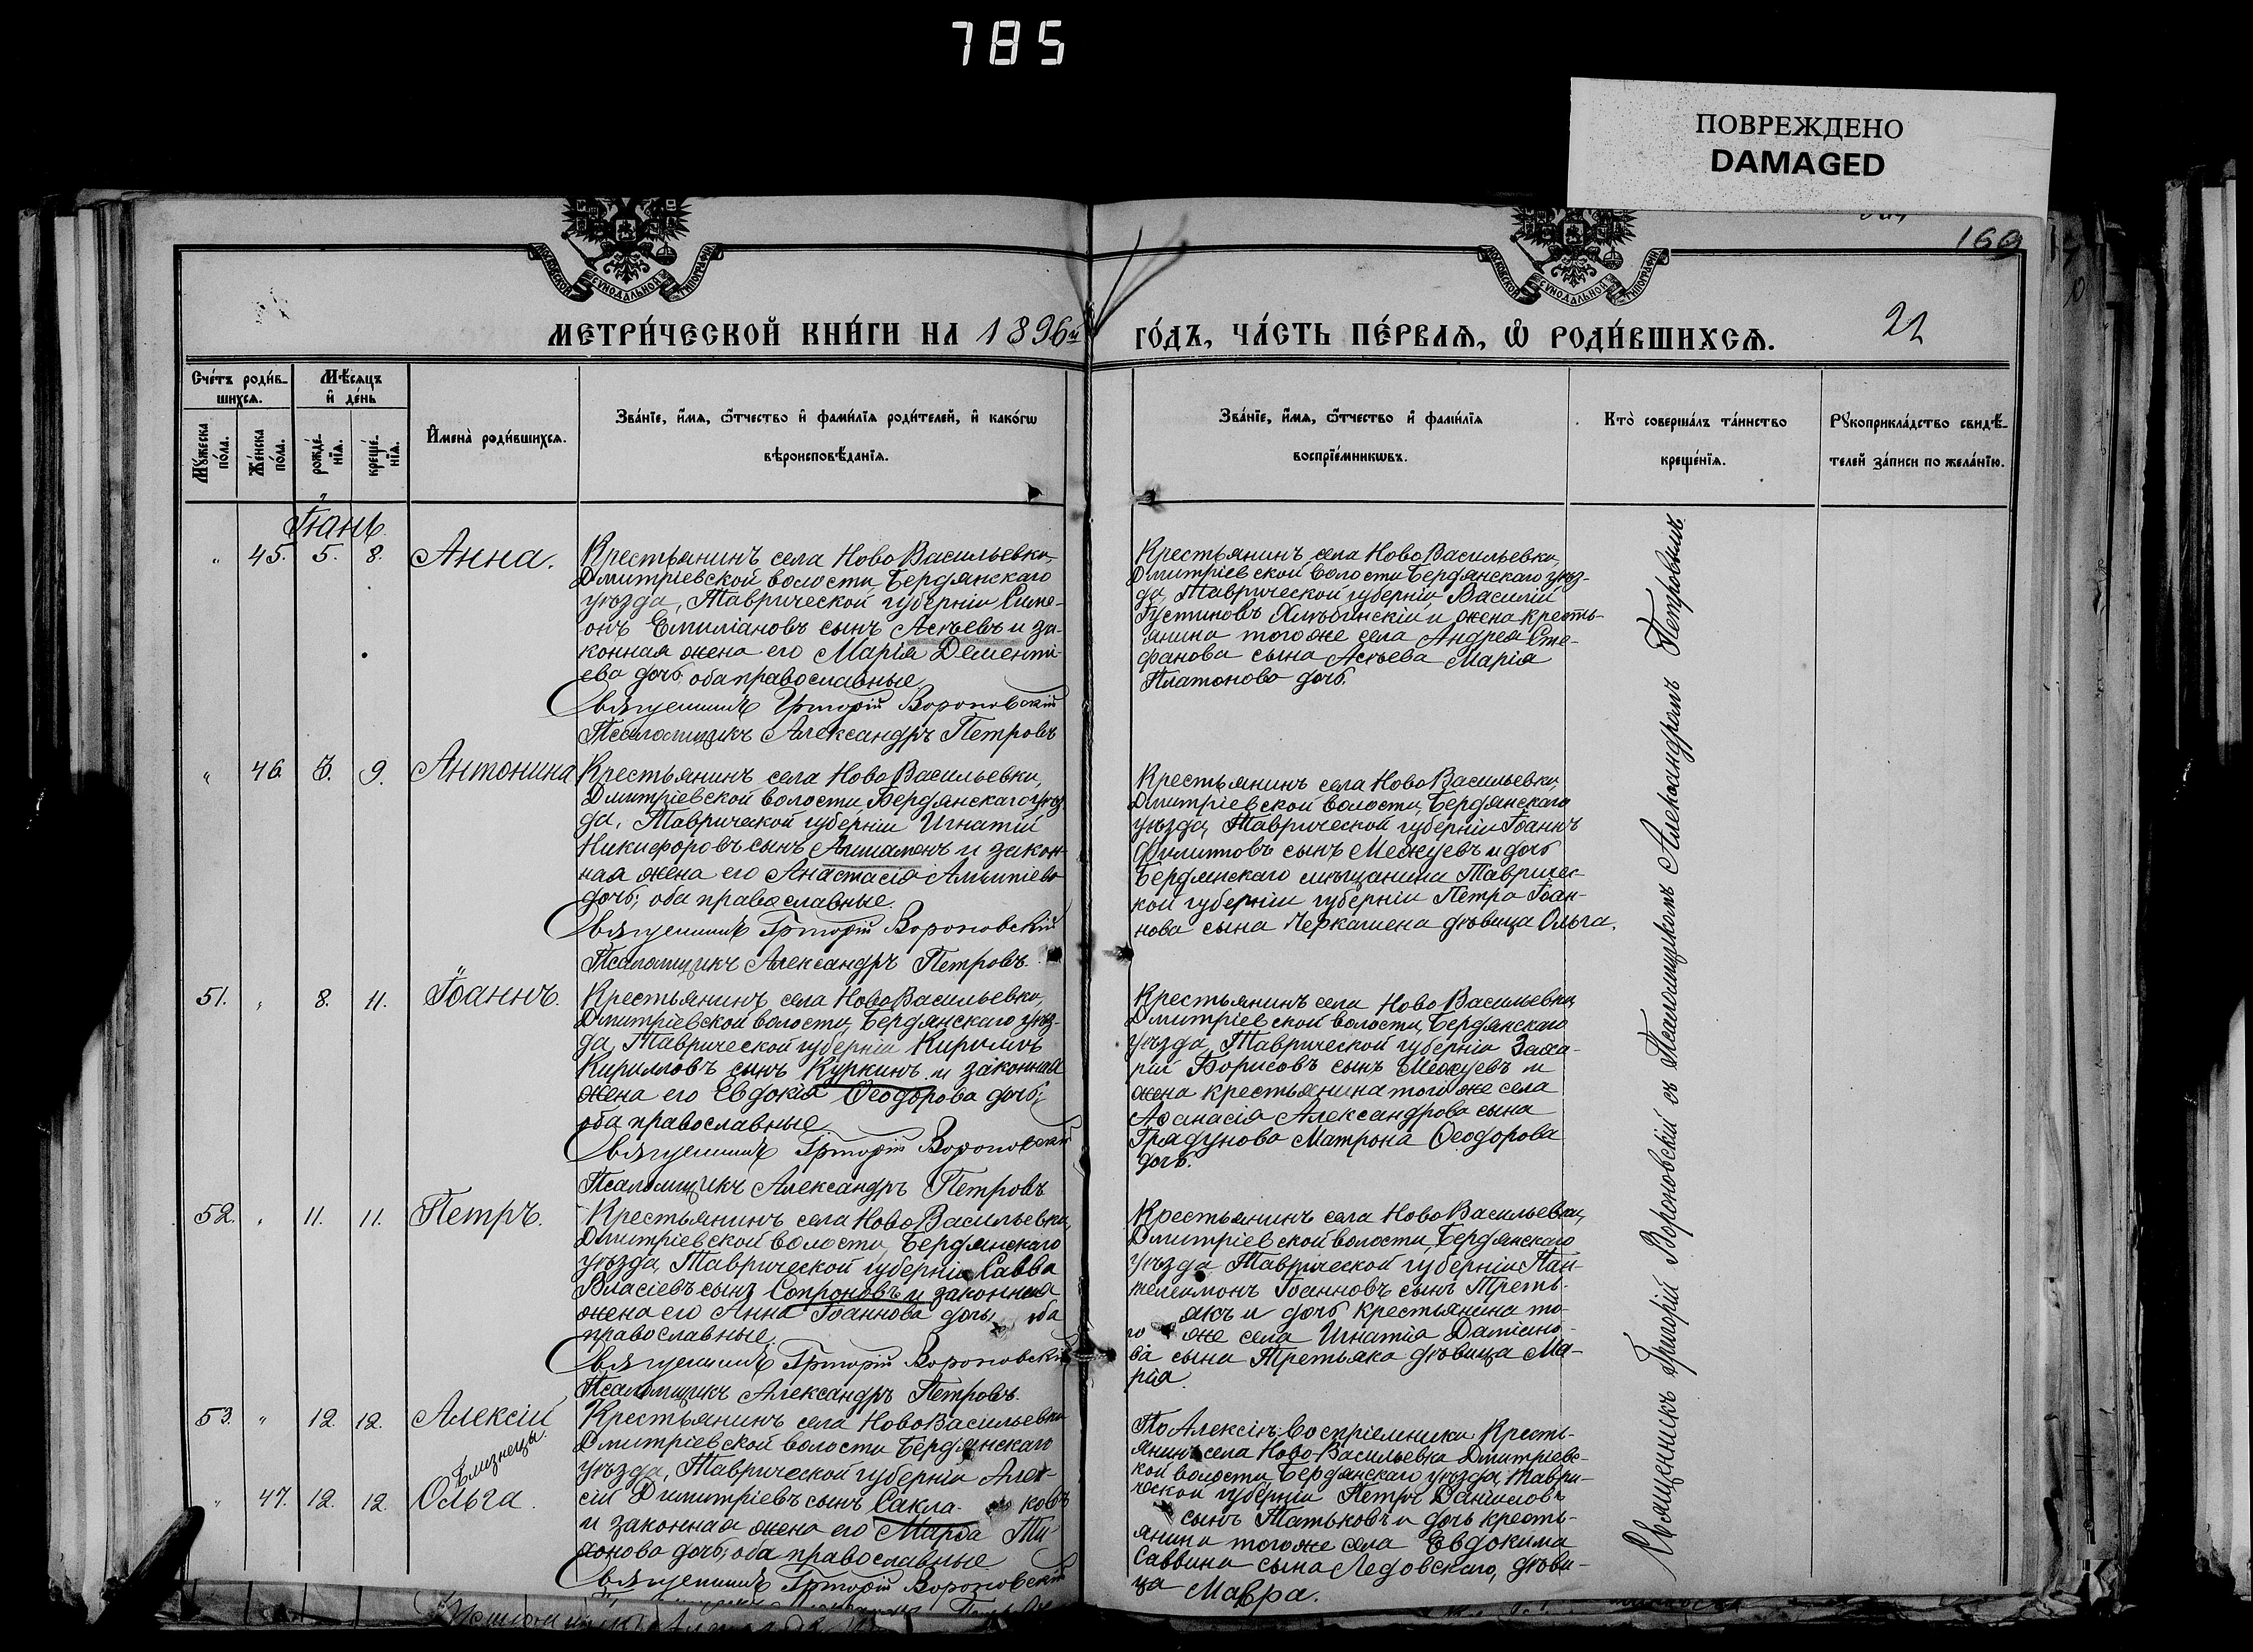 785
ПОВРЕЖДЕНО
DAMAGED
169
МОСКОВСКОЙ СУНОДАЛЬНОЙ ТИПОГРАФІИ
МОСКОВСКОЙ СУНОДАЛЬНОЙ ТИПОГРАФІИ
МЕТРИ́ЧЕСКОЙ КНИ́ГИ НА 1896й
ГО́ДЪ, ЧА́СТЬ ПЕ́РВАѦ, Ѡ РОДИ́ВШИХСѦ.
Сче́тъ роди́в-
шихся.
Мѣ́сяцъ
и́ де́нь
Му́жеска по́ла.
Же́нска по́ла.
рожде́-нїя.
креще́-нїя.
И҆мена̀ роди́вшихся.
Зва́нїе, и҆́мя, ѻ҆́тчество и҆ фами́лїя роди́телей, и҆ како́гѡ
вѣроисповѣ́данїя.
Зва́нїе, и҆́мя, ѻ҆́тчество и҆ фами́лїя
воспрїе́мникѡвъ.
Кто̀ соверша́лъ та́инство
креще́нїя.
Рꙋкоприкла́дство свидѣ́-
телей за́писи по жела́нїю.
Іюнь.
" 45. 5. 8. Анна.
Крестьянинъ села НовоВасильевки,
Дмитріевской волости Бердянскаго
уѣзда, Таврической губерніи Симе-
онъ Емиліановъ сынъ Асѣевъ и за-
конная жена его Марія Дементі-
ева дочь, оба православные.
Священникъ Григорій Вороновскій
Псаломщикъ Александръ Петровъ
Крестьянинъ села НовоВасильевки,
Дмитріевской волости Бердянскаго уѣз-
да, Таврической губерніи Василій
Густиновъ Хлѣбинскій и жена кресть-
янина того же села Андрея Сте-
фанова сына Асѣева Марія
Платонова дочь.
" 46. 5. 9. Антонина
Крестьянинъ села НовоВасильевки,
Дмитріевской волости Бердянскаго уѣз
да, Таврической губерніи Игнатій
Никифоровъ сынъ и закон-
ная жена его Анастасія
дочь; оба православные.
Священникъ Григорій Вороновскій
Псаломщикъ Александръ Петровъ.
Крестьянинъ села НовоВасильевки,
Дмитріевской волости, Бердянскаго
уѣзда, Таврической губерніи Іоаннъ
Филиповъ сынъ Межуевъ и дочь
Бердянскаго мѣщанина Тавричес-
кой губерніи губерніи Петра Іоан-
нова сына Черкашена дѣвица Ольга.
51. " 8. 11. Іоаннъ.
Крестьянинъ села НовоВасильевки,
Дмитріевской волости, Бердянскаго уѣз-
да, Таврической губерніи Кириллъ
Кирилловъ сынъ Куркинъ и законная
жена его Евдокія Ѳеодорова дочь;
оба православные
Священникъ Григорій Вороновскій
Псаломщикъ Александръ Петровъ
Крестьянинъ села НовоВасильевки,
Дмитріевской волости, Бердянскаго
уѣзда, Таврической губерніи Заха-
рій Борисовъ сынъ Межуевъ и
жена крестьянина того же села
Аѳанасія Александрова сына
Грядунова Матрона Ѳеодорова
дочь.
52. " 11. 11. Петръ.
Крестьянинъ села НовоВасильевки,
Дмитріевской волости, Бердянскаго
уѣзда, Таврической губерніи Савва
Власіевъ сынъ Сопроновъ и законная
жена его Анна Іоаннова дочь, оба
православные.
Священникъ Григорій Вороновскій
Псаломщикъ Александръ Петровъ.
Крестьянинъ села НовоВасильевки,
Дмитріевской волости, Бердянскаго
уѣзда Таврической губерніи Пан-
телеимонъ Іоанновъ сынъ Треть-
якъ и дочь крестьянина то-
го же села Игнатія Даміано-
ва сына Третьяка дѣвица Ма-
рія.
53. " 12. 12. Алексій
Близнецы.
" 47. 12. 12. Ольга.
Крестьянинъ села НовоВасильевки
Дмитріевской волости Бердянскаго
уѣзда, Таврической губерніи Алек-
сій Димитріевъ сынъ Сакла- ковъ
и законная жена его Марѳа Ти-
хонова дочь; оба православные
Священникъ Григорій Вороновскій
По Алексіѣ: Воспріемники Кресть-
янинъ села Ново-Васильевка Дмитріевс-
кой волости, Бердянскаго уѣзда, Таври-
ческой губерніи Петръ Даніиловъ
сынъ Татьковъ и дочь кресть-
янина того же села Евдокима
Саввина сына Ледовскаго, дѣви-
ца Мавра.
Священникъ Григорій Вороновскій съ Псаломщикомъ Александромъ Петровымъ.